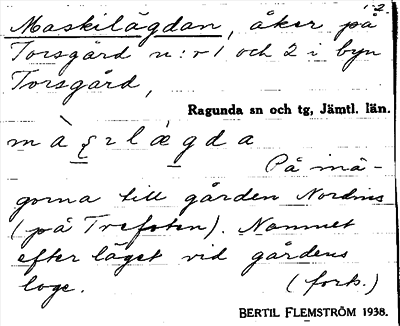 1-2.
Maskilägdan, åker på
Torsgård n:r 1 och 2 i byn
Torsgård,
Ragunda sn och tg, Jämtl. län.
På mä-
gorna till gården Nordins
(på Trefoten). Namnet
efter läget vid gårdens
loge. (forts.)
BERTIL FLEMSTRÖM 1938.